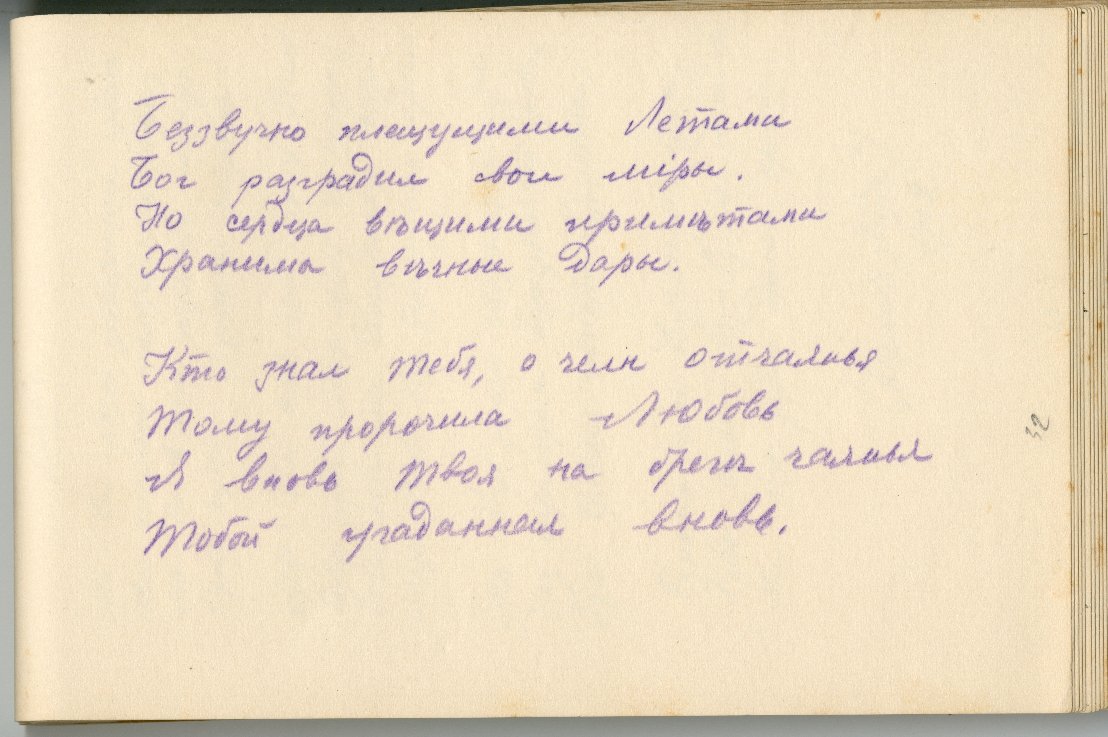 Беззвучно плещущими Летами
Бог разградил свои мiры.
Но сердца вѣщими примѣтами
Хранимы вѣчные дары.
Кто знал тебя, о челн отчаянья
Тому пророчила Любовь
Я вновь твоя на брегѣ чаянья
Тобой угаданная вновь.
32